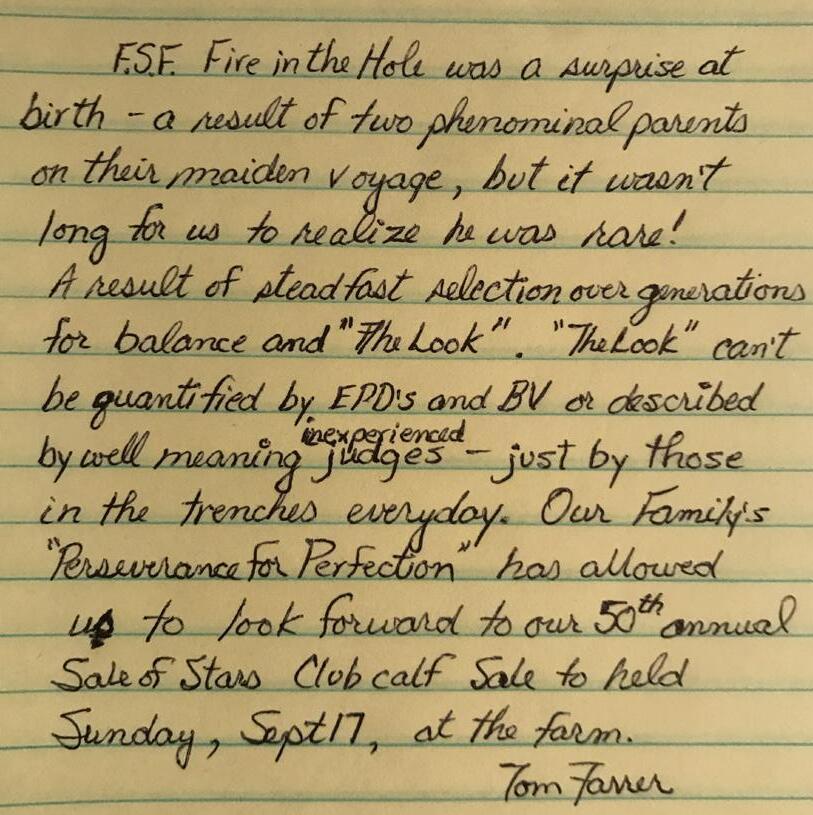 F.S.F. Fire in the Hole was a surprise at
birth - a result of two phenominal parents
on their maiden voyage, but it wasn't
long for us to realize he was rare!
A result of steadfast selection over generations
for balance and "The Look". "The Look" can't
be quantified by EPD's and BV or described
inexperienced
by well meaning judges - just by those
in the trenches everyday. Our Family's
"Perseverance for Perfection" has allowed
us to look forward to our 50th annual
Sale of Stars Club calf Sale to held
Sunday, Sept 17, at the farm.
Tom Farrer